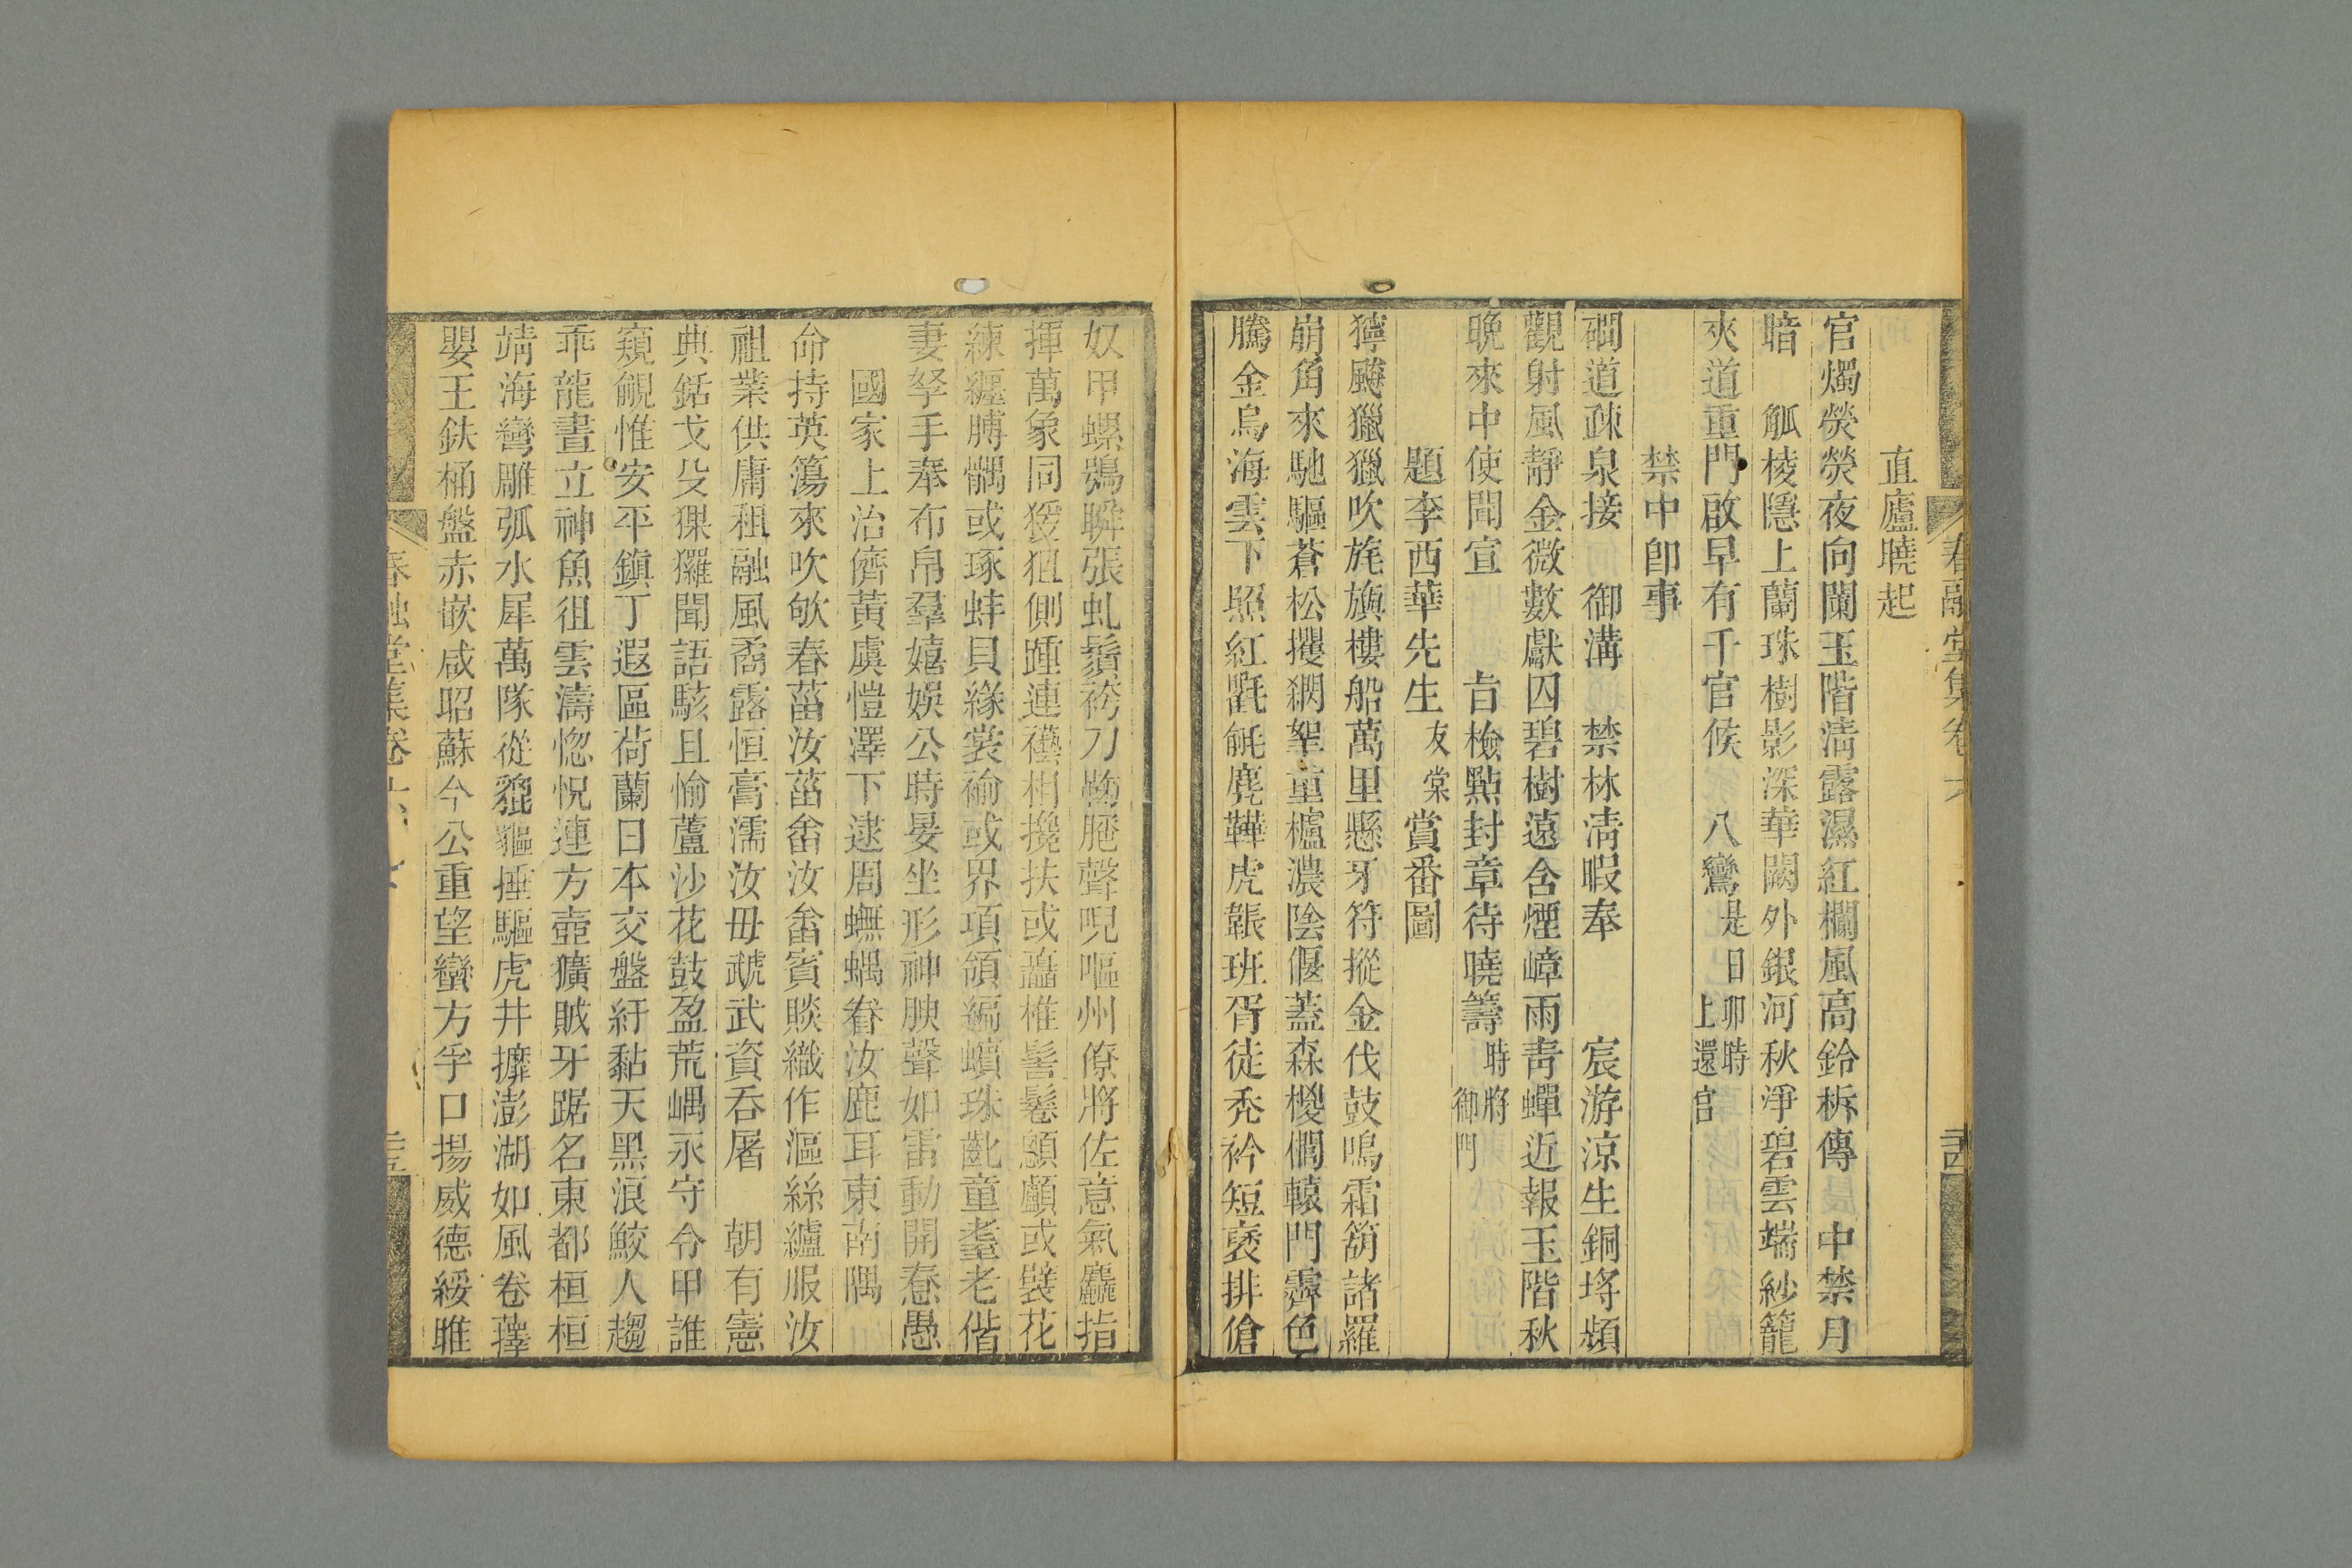 春融堂集卷六
直廬曉起
官燭熒熒夜向闌玉階淸露濕紅欄風高鈴柝傳 中禁月
暗 觚棱隱上蘭珠樹影深華闕外銀河秋淨碧雲端紗籠
夾道重門啟早有千官候 八鸞是日卯時上還宫
禁中卽事
禂道疎泉接 御溝 禁林淸暇奉 宸游涼生銅埒頻
觀射風靜金微數獻囚碧樹遠含煙嶂雨靑蟬近報玉階秋
晚來中使間宣 㫖檢點封章待曉籌時將御門
題李西華先生友棠賞番圖
獰飈獵獵吹旄旟樓船萬里懸牙符摐金伐鼓鳴霜笳諸羅
崩角來馳驅蒼松攫 挐童櫨濃陰偃蓋森椶櫚轅門霽色
騰金烏海雲下照紅氍毹麂鞾虎韔班胥徒禿衿短褎排傖
奴甲螺鴞瞬張虬鬚袴刀 脃聲呪嘔州僚將佐意氣麤指
揮萬象同猨狙側踵連 相攙扶或 椎髻鬈顋顱或襞花
練纏膊髃或琢蚌貝緣裳褕或界項領編蠙珠齔童耋老偕
妻孥手奉布帛羣嬉娛公時晏坐形神腴聲如雷動開惷愚
國家上治儕黃虞愷澤下逮周蟱蝸眷汝鹿耳東南隅
命持英簜來吹欨春菑汝菑畬汝畬賓賧織作漚絲纑服汝
祖業供庸租融風矞露恒膏濡汝毋虣武資吞屠 朝有憲
典銛戈殳猓玀聞語駭且愉蘆沙花鼓盈荒嵎永守令甲誰
窺覦惟安平鎭丁遐區荷蘭日本交盤紆黏天黑浪鮫人趨
乖龍晝立神魚徂雲濤惚怳連方壺獷賊牙踞名東都桓桓
靖海彎雕弧水犀萬隊從貔貙捶驅虎井擲澎湖如風卷蘀
嬰王鈇桶盤赤嵌咸昭蘇今公重望蠻方孚口揚威德綏睢
春融堂集卷六